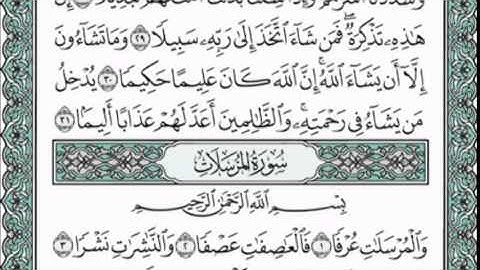 إِنَّ
هَٰذِهِۦ تَذۡكِرَةٞۖ فَمَن شَآءَ ٱتَّخَذَ إِلَىٰ رَبِّهِۦ سَبِيلٗا ٢٩ وَمَا تَشَآءُونَ
إِلَّآ أَن يَشَآءَ ٱللَّهُۚ إِنَّ ٱللَّهَ كَانَ عَلِيمًا حَكِيمٗا ٣٠ يُدۡخِلُ
مَن يَشَآءُ فِي رَحۡمَتِهِۦۚ وَٱلظَّٰلِمِينَ أَعَدَّ لَهُمۡ عَذَابًا أَلِيمَۢا ٣١
سُورَةُ المُرۡسَلَاتِ
بِسۡمِ ٱللَّهِ ٱلرَّحۡمَٰنِ ٱلرَّحِيمِ
وَٱلۡمُرۡسَلَٰتِ عُرۡفٗا ١ فَٱلۡعَٰصِفَٰتِ عَصۡفٗا ٢ وَٱلنَّٰشِرَٰتِ نَشۡرٗا ٣